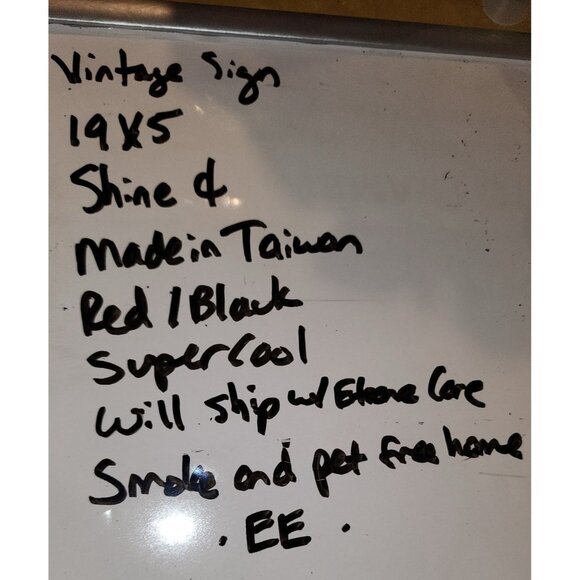 Vintage Sign
19X5
Shine &
Made in Taiwan
Red / Black
Super Cool
Will Ship w/ Extreme Care
Smoke and pet free home
. EE .